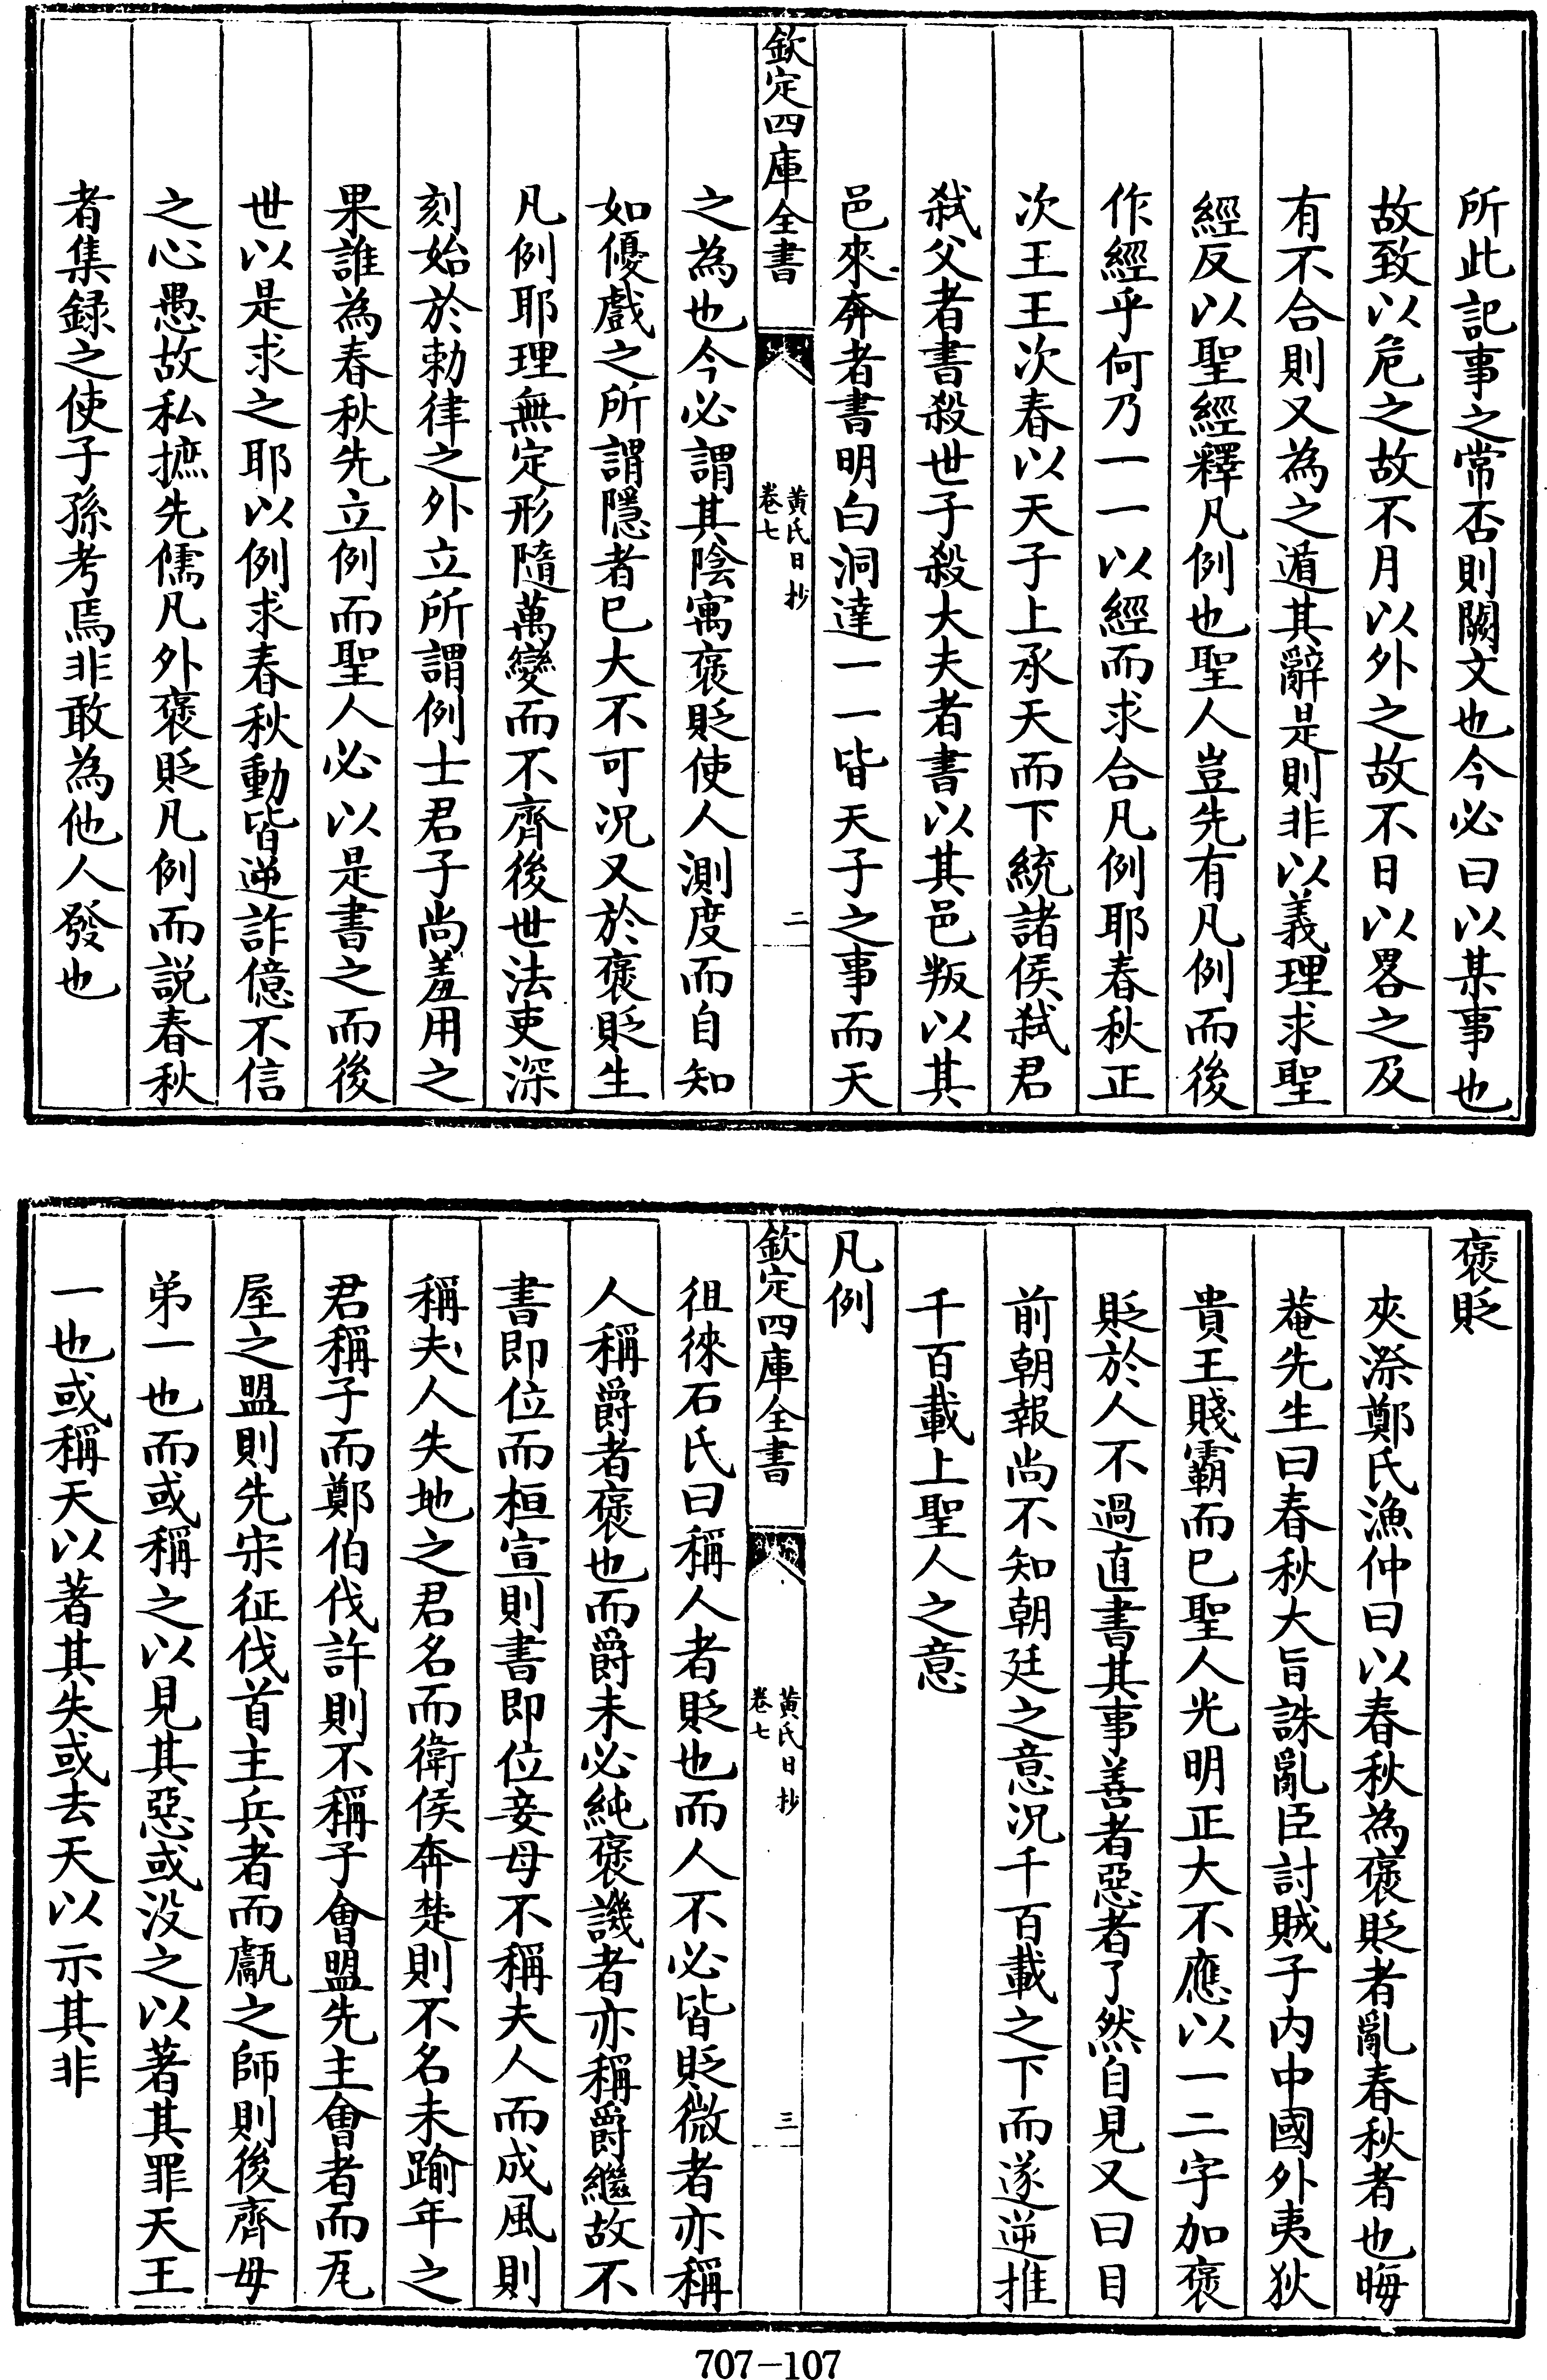 所此記事之常否則闕文也今必曰以某事也
故致以危之故不月以外之故不日以畧之及
有不合則又為之遁其辭是則非以義理求聖
經反以聖經釋凡例也聖人豈先有凡例而後
作經乎何乃一一以經而求合凡例耶春秋正
次王王次春以天子上承天而下統諸侯弑君
弑父者書殺世子殺大夫者書以其邑叛以其
邑來奔者書明白洞達一一皆天子之事而天
欽定四庫全書
黄氏日抄
卷七
二
之為也今必謂其陰寓褒貶使人測度而自知
如優戲之所謂隱者已大不可况又於褒貶生
凡例耶理無定形隨萬變而不齊後世法吏深
刻始於勅律之外立所謂例士君子尚羞用之
果誰為春秋先立例而聖人必以是書之而後
世以是求之耶以例求春秋動皆逆詐億不信
之心愚故私摭先儒凡外褒貶凡例而説春秋
者集録之使子孫考焉非敢為他人發也
褒貶
夾漈鄭氏漁仲曰以春秋為褒貶者亂春秋者也晦
菴先生曰春秋大旨誅亂臣討賊子内中國外夷狄
貴王賤霸而已聖人光明正大不應以一二字加褒
貶於人不過直書其事善者惡者了然自見又曰目
前朝報尚不知朝廷之意况千百載之下而遂逆推
千百載上聖人之意
凡例
欽定四庫全書
黄氏日抄
卷七
三
徂徠石氏曰稱人者貶也而人不必皆貶微者亦稱
人稱爵者褒也而爵未必純褒譏者亦稱爵繼故不
書即位而桓宣則書即位妾母不稱夫人而成風則
稱夫人失地之君名而衛侯奔楚則不名未踰年之
君稱子而鄭伯伐許則不稱子會盟先主會者而瓦
屋之盟則先宋征伐首主兵者而甗之師則後齊母
弟一也而或稱之以見其惡或没之以著其罪天王
一也或稱天以著其失或去天以示其非
707-107